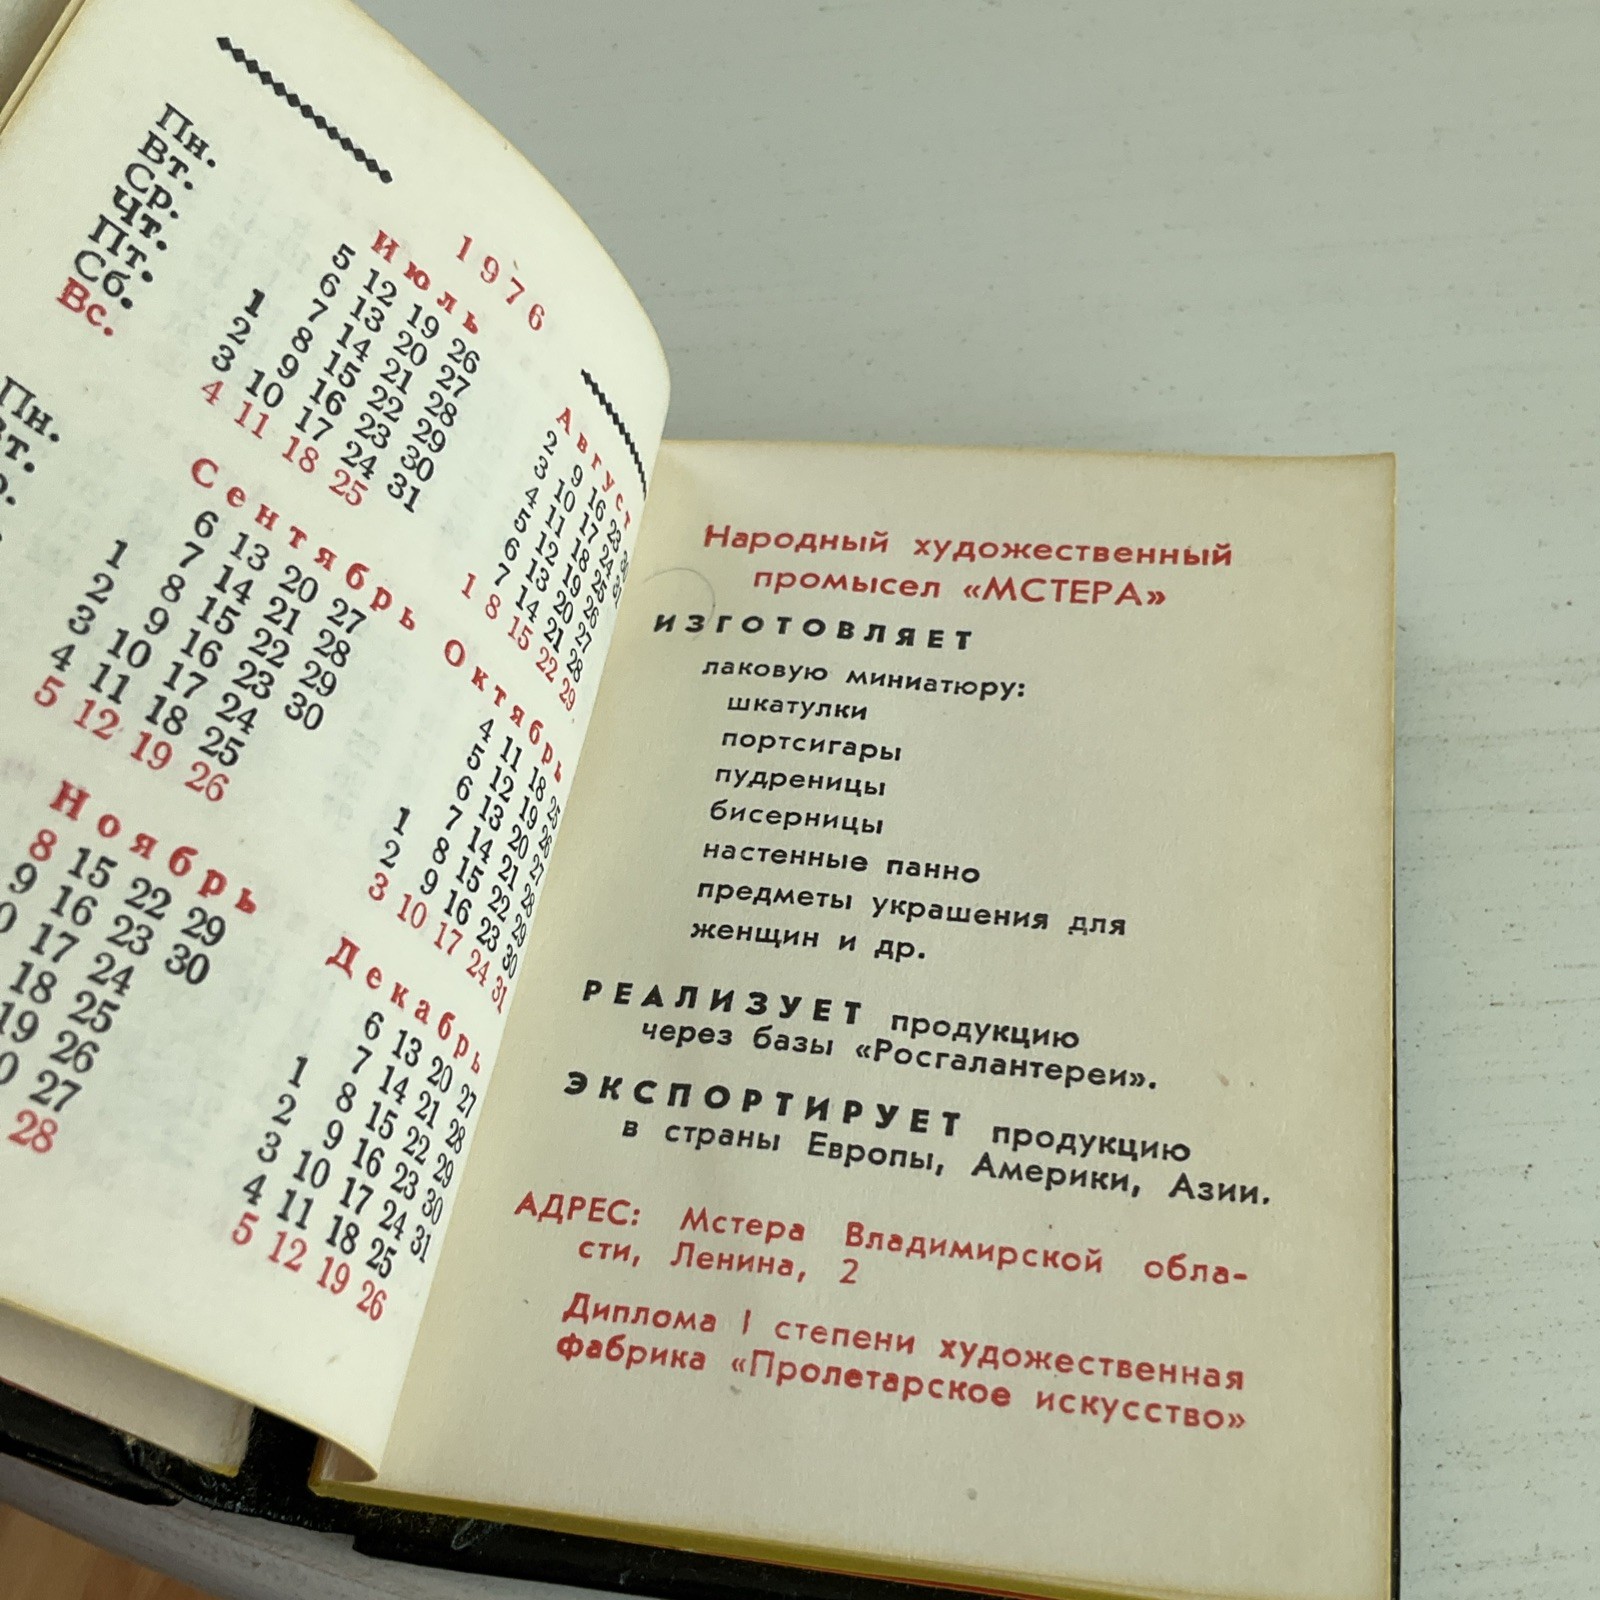 1976
Июль Август
Пн. 5 12 19 26 2 9 16 23
Вт. 6 13 20 27 3 10 17 24
Ср. 7 14 21 28 4 11 18 25
Чт. 1 8 15 22 29 5 12 19 26
Пт. 2 9 16 23 30 6 13 20 27
Сб. 3 10 17 24 31 7 14 21 28
Вс. 4 11 18 25 1 8 15 22 29
Сентябрь Октябрь
Пн. 6 13 20 27 4 11 18 25
7 14 21 28 5 12 19 26
1 8 15 22 29 6 13 20 27
2 9 16 23 30 7 14 21 28
3 10 17 24 1 8 15 22 29
4 11 18 25 2 9 16 23 30
5 12 19 26 3 10 17 24 31
Ноябрь Декабрь
8 15 22 29 6 13 20 27
9 16 23 30 7 14 21 28
17 24 1 8 15 22 29
18 25 2 9 16 23 30
19 26 3 10 17 24 31
27 4 11 18 25
28 5 12 19 26
Народный художественный
промысел «МСТЕРА»
ИЗГОТОВЛЯЕТ
лаковую миниатюру:
шкатулки
портсигары
пудреницы
бисерницы
настенные панно
предметы украшения для
женщин и др.
РЕАЛИЗУЕТ продукцию
через базы «Росгалантереи».
ЭКСПОРТИРУЕТ продукцию
в страны Европы, Америки, Азии.
АДРЕС: Мстера Владимирской обла-
сти, Ленина, 2
Диплома I степени художественная
фабрика «Пролетарское искусство»